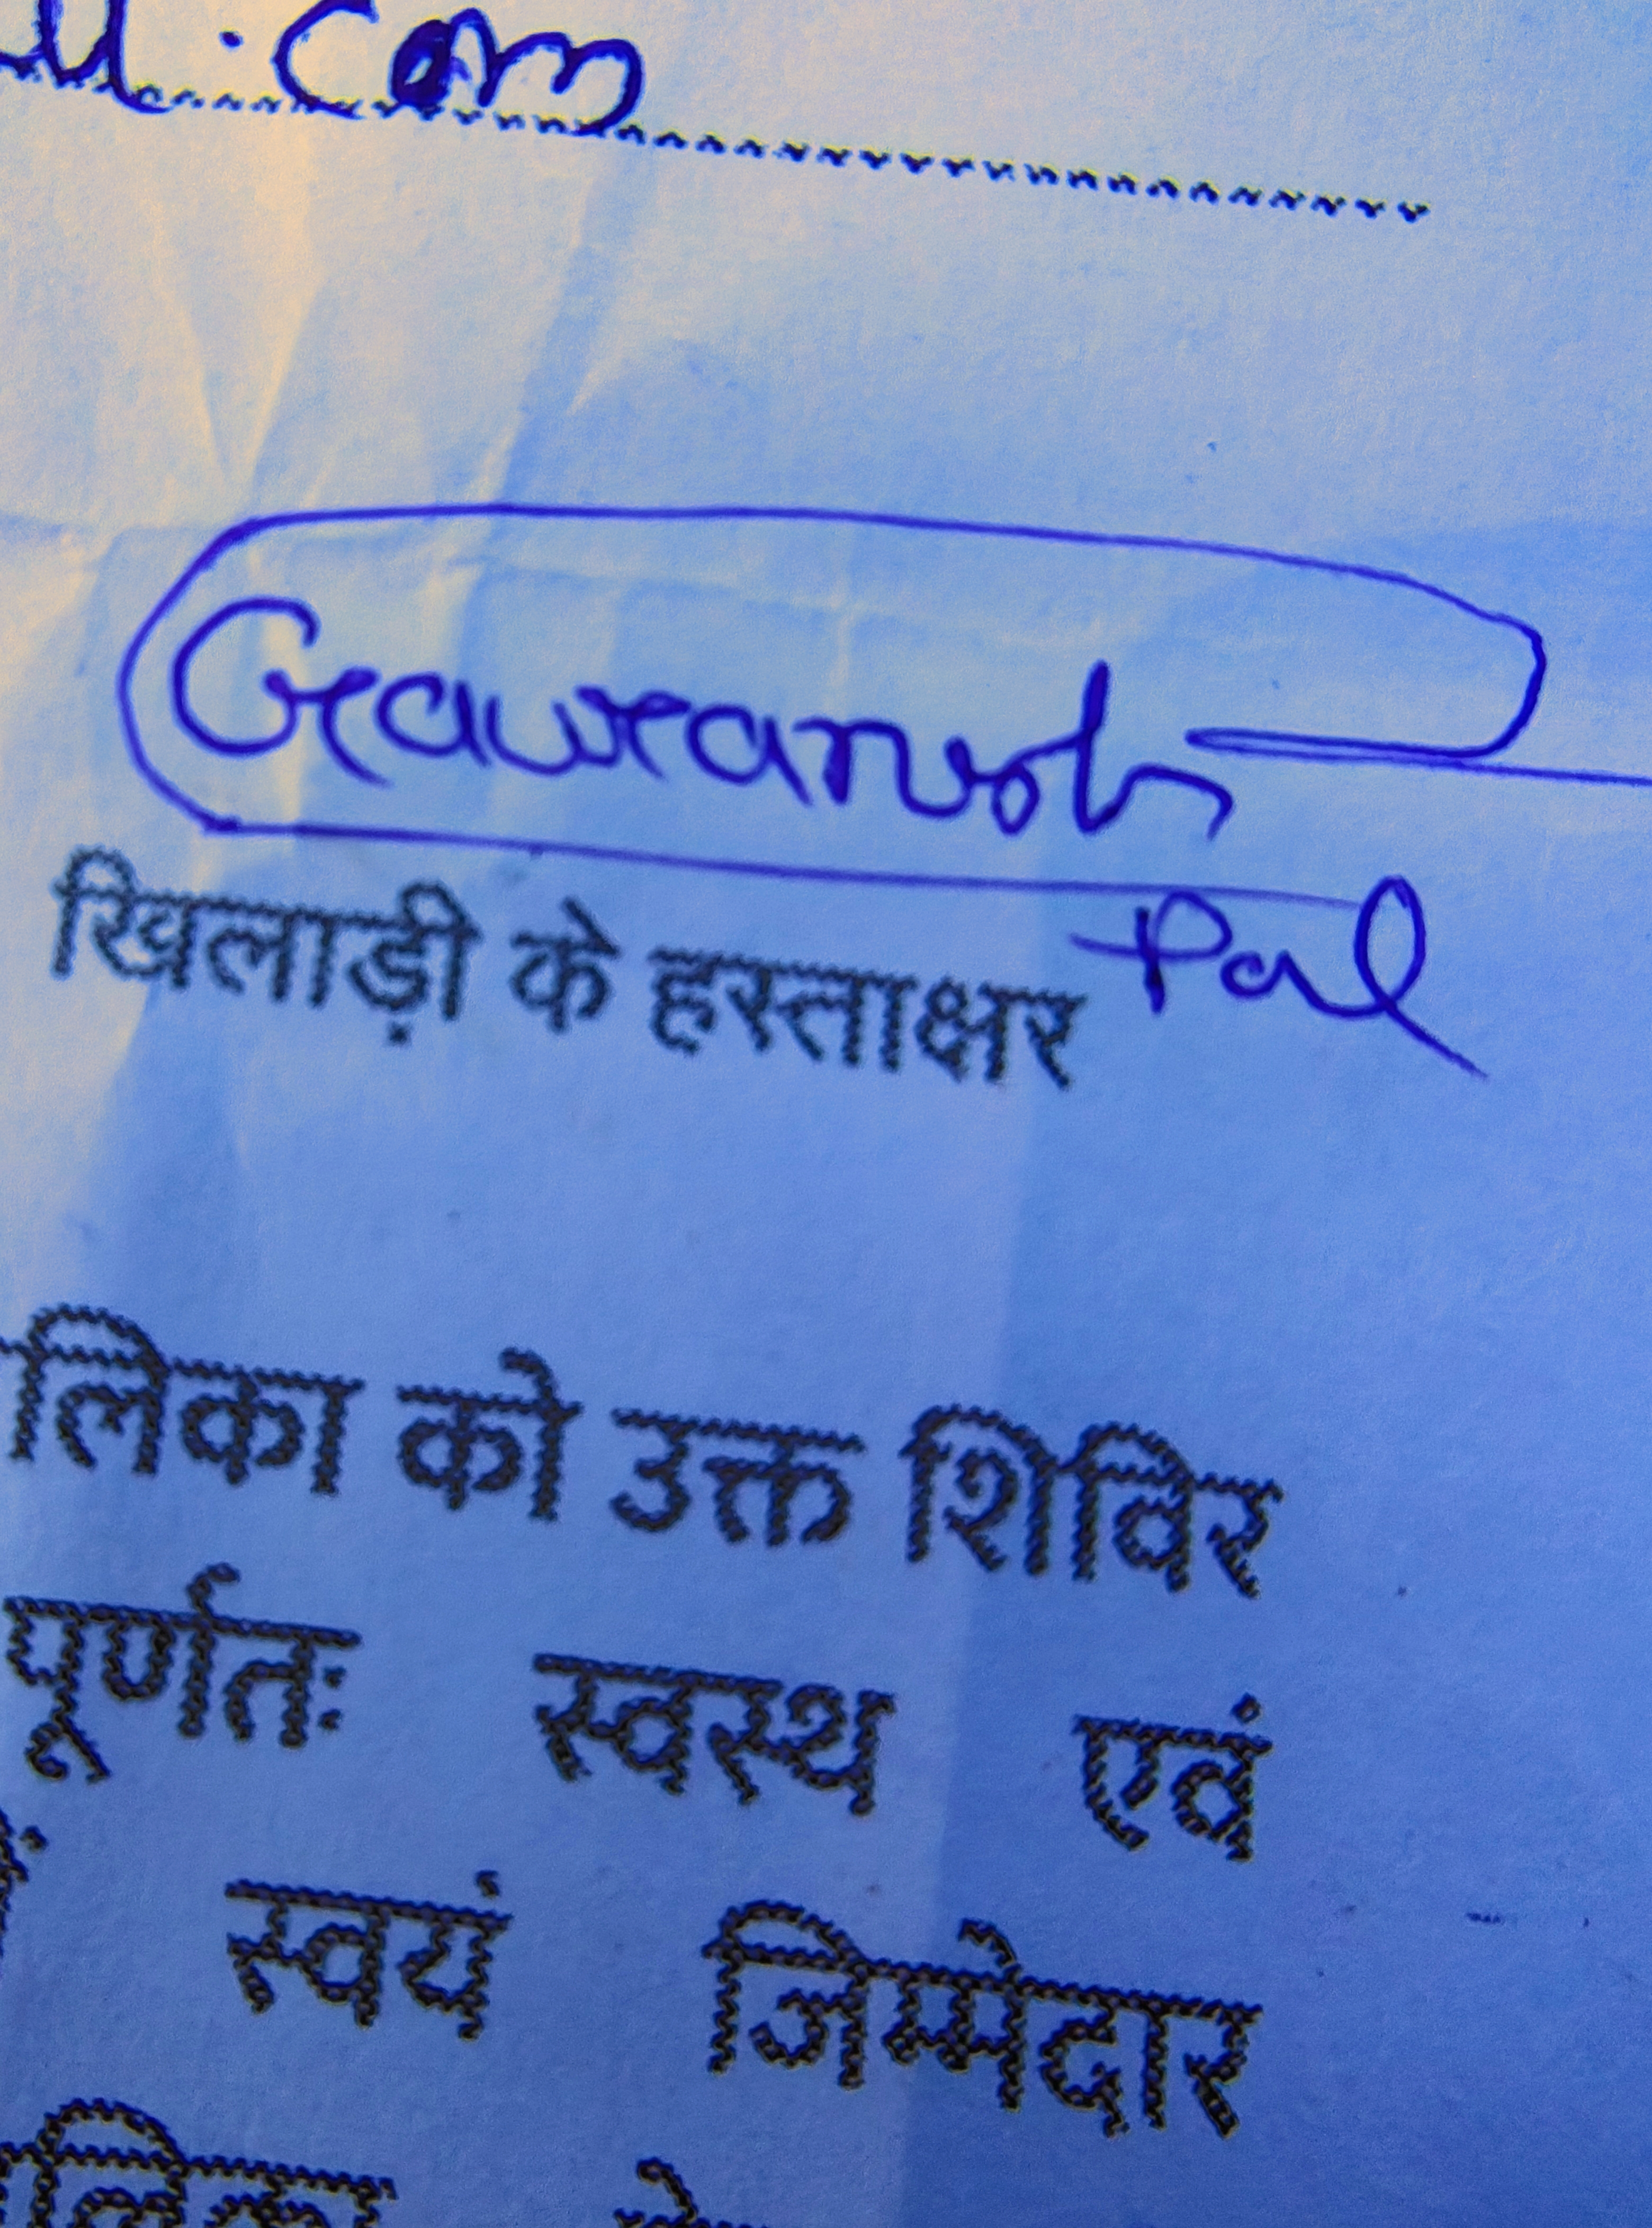 .com
Gauransh
खिलाड़ी के हस्ताक्षर Pal
लिका को उक्त शिविर
पूर्णतः स्वस्थ एवं
स्वयं जिम्मेदार